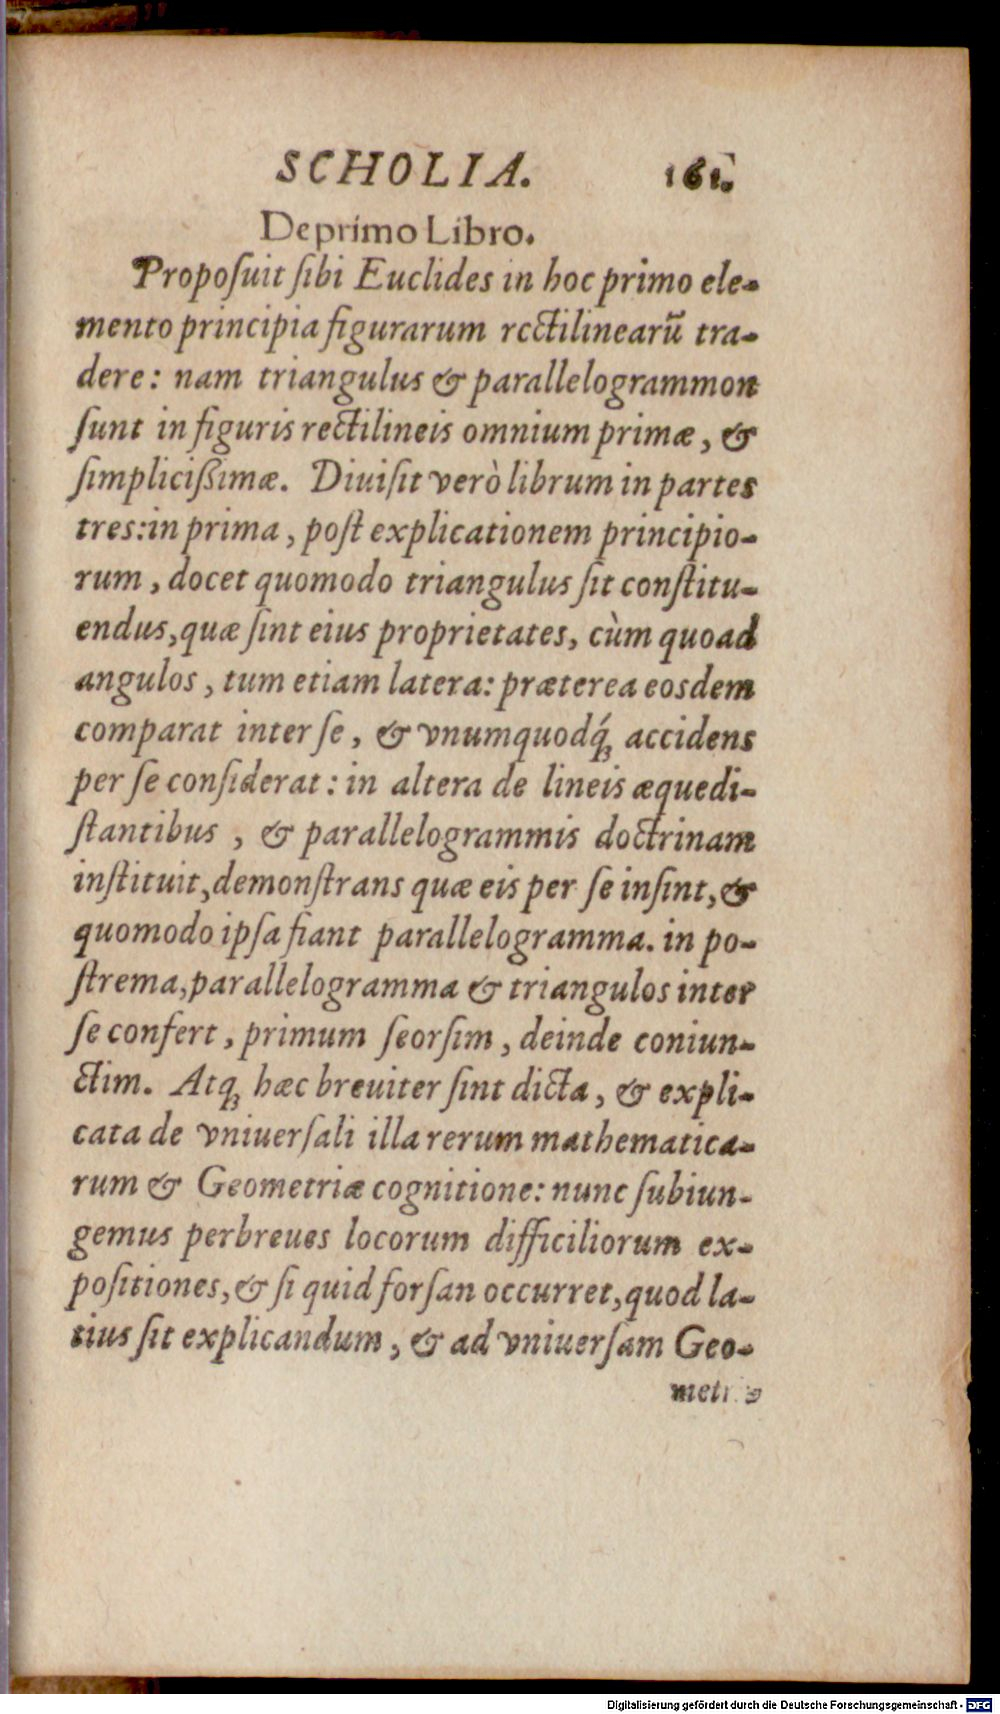 SCHOLIA. 161.
De primo Libro.
Propoſuit ſibi Euclides in hoc primo ele-
mento principia figurarum rectilinearũ tra-
dere: nam triangulus & parallelogrammon
ſunt in figuris rectilineis omnium primæ, &
ſimpliciſſimæ. Diuiſit verò librum in partes
tres: in prima, poſt explicationem principio-
rum, docet quomodo triangulus ſit conſtitu-
endus, quæ ſint eius proprietates, cùm quoad
angulos, tum etiam latera: præterea eosdem
comparat inter ſe, & vnumquodq́; accidens
per ſe conſiderat: in altera de lineis æquedi-
ſtantibus, & parallelogrammis doctrinam
inſtituit, demonſtrans quæ eis per ſe inſint, &
quomodo ipſa fiant parallelogramma. in po-
ſtrema, parallelogramma & triangulos inter
ſe confert, primum ſeorſim, deinde coniun-
ctim. Atq; hæc breuiter ſint dicta, & expli-
cata de vniuerſali illa rerum mathematica-
rum & Geometriæ cognitione: nunc ſubiun-
gemus perbreues locorum difficiliorum ex-
poſitiones, & ſi quid forſan occurret, quod la-
tius ſit explicandum, & ad vniuerſam Geo-
Digitalisierung gefördert durch die Deutsche Forschungsgemeinschaft - DFG